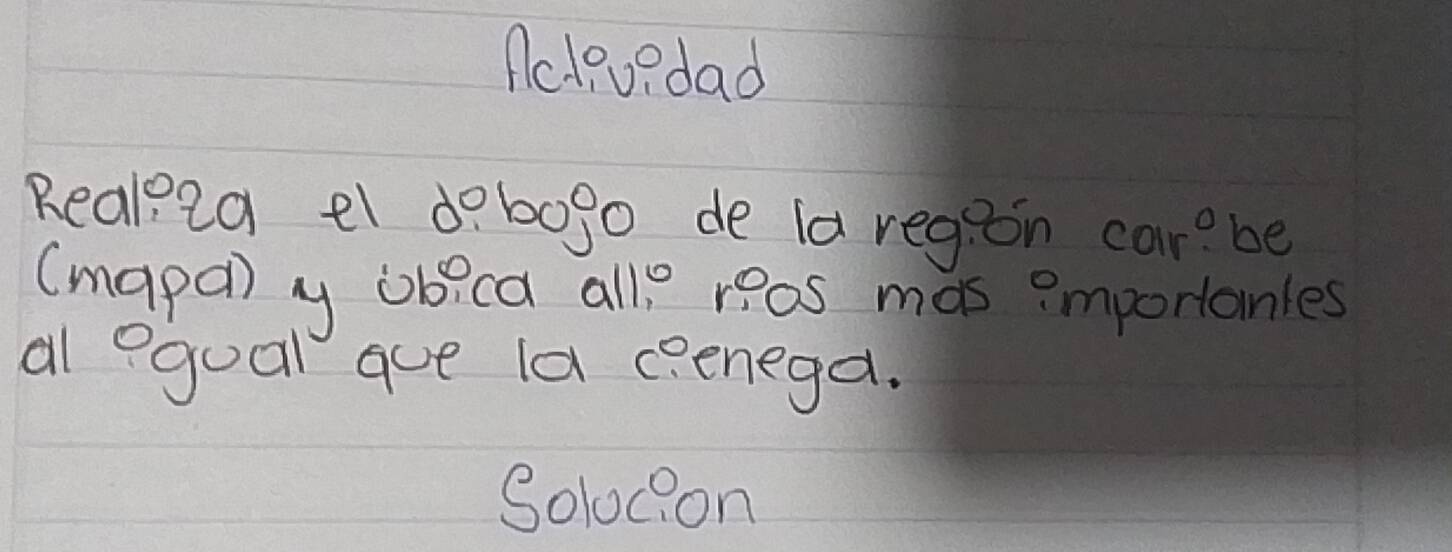 Actividad
Realiza el dibojo de la región caribe
(mapa) y ubica alli rios mas importantes
al igual que la cienega.
Solucion